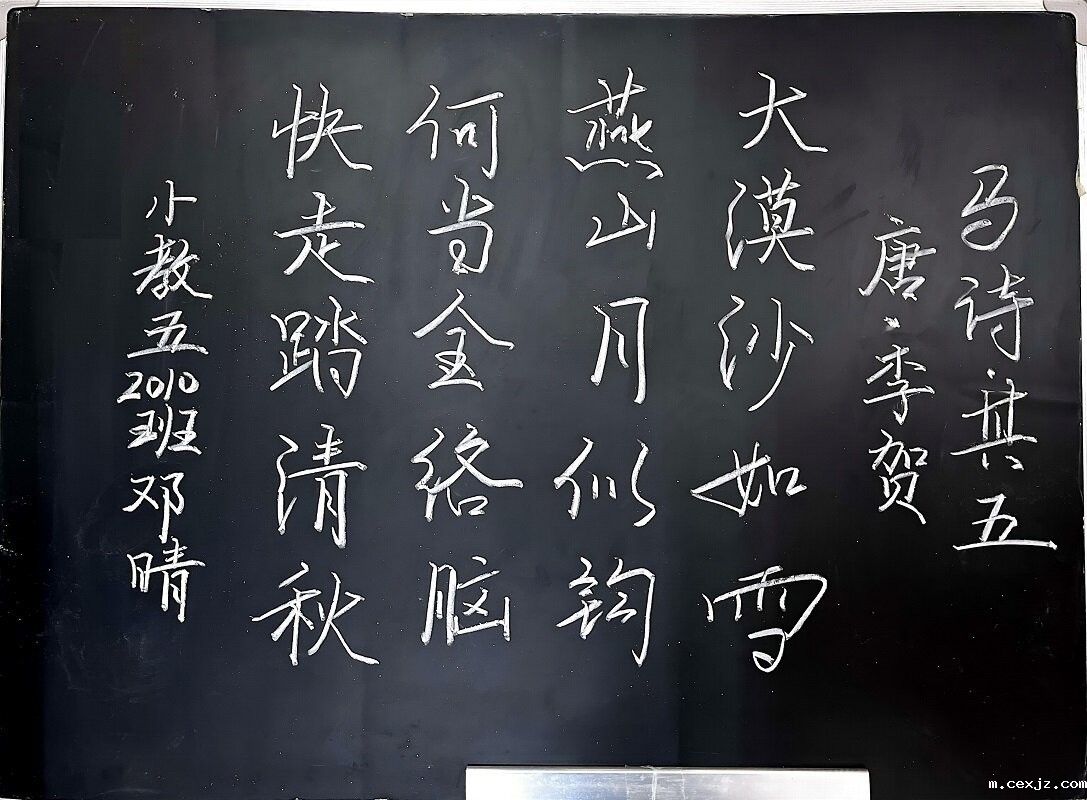 马诗·其五
唐·李贺
大漠沙如雪
燕山月似钩
何当金络脑
快走踏清秋
小教五2010班邓晴
m.cexjz.com